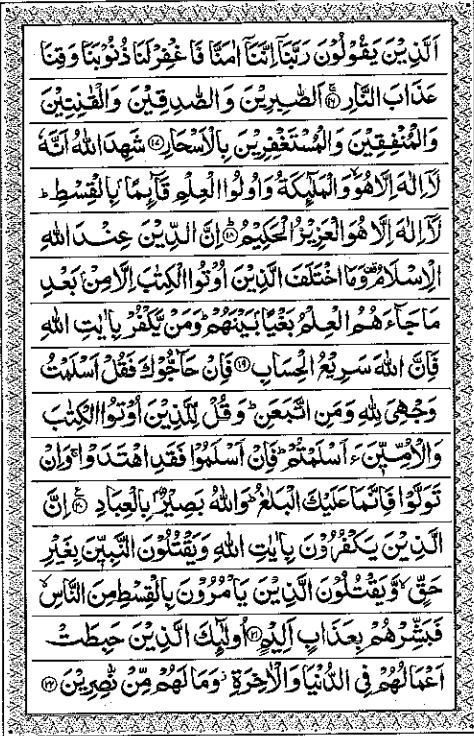 اَلَّذِيْنَ يَقُوْلُوْنَ رَبَّنَاۤ اِنَّنَاۤ اٰمَنَّا فَاغْفِرْ لَنَا ذُنُوْبَنَا وَقِنَا
عَذَابَ النَّارِ ۚ‏﴿۱۶﴾ اَلصّٰبِرِيْنَ وَالصّٰدِقِيْنَ وَالْقٰنِتِيْنَ
وَالْمُنْفِقِيْنَ وَالْمُسْتَغْفِرِيْنَ بِالْاَسْحَارِ ﴿۱۷﴾ شَهِدَ اللّٰهُ اَنَّهٗ
لَاۤ اِلٰهَ اِلَّا هُوَ ۙ وَالْمَلٰٓئِكَةُ وَاُولُوا الْعِلْمِ قَآئِمًاۢ بِالْقِسْطِ ؕ
لَاۤ اِلٰهَ اِلَّا هُوَ الْعَزِيْزُ الْحَكِيْمُ ؕ﴿۱۸﴾ اِنَّ الدِّيْنَ عِنْدَ اللّٰهِ
الْاِسْلَامُ ۟ وَمَا اخْتَلَفَ الَّذِيْنَ اُوْتُوا الْكِتٰبَ اِلَّا مِنْۢ بَعْدِ
مَا جَآءَهُمُ الْعِلْمُ بَغْيًاۢ بَيْنَهُمْ ؕ وَمَنْ يَّكْفُرْ بِاٰيٰتِ اللّٰهِ
فَاِنَّ اللّٰهَ سَرِيْعُ الْحِسَابِ ﴿۱۹﴾ فَاِنْ حَآجُّوْكَ فَقُلْ اَسْلَمْتُ
وَجْهِیَ لِلّٰهِ وَمَنِ اتَّبَعَنِ ؕ وَقُلْ لِّلَّذِيْنَ اُوْتُوا الْكِتٰبَ
وَالْاُمِّيّٖنَ ءَاَسْلَمْتُمْ ؕ فَاِنْ اَسْلَمُوْا فَقَدِ اهْتَدَوْا ۚ وَاِنْ
تَوَلَّوْا فَاِنَّمَا عَلَيْكَ الْبَلٰغُ ؕ وَاللّٰهُ بَصِيْرٌۢ بِالْعِبَادِ ﴿۲۰﴾ اِنَّ
الَّذِيْنَ يَكْفُرُوْنَ بِاٰيٰتِ اللّٰهِ وَيَقْتُلُوْنَ النَّبِيّٖنَ بِغَيْرِ
حَقٍّ ۙ وَّيَقْتُلُوْنَ الَّذِيْنَ يَاْمُرُوْنَ بِالْقِسْطِ مِنَ النَّاسِ ۙ
فَبَشِّرْهُمْ بِعَذَابٍ اَلِيْمٍ ﴿۲۱﴾ اُولٰٓئِكَ الَّذِيْنَ حَبِطَتْ
اَعْمَالُهُمْ فِی الدُّنْيَا وَالْاٰخِرَةِ ۫ وَمَا لَهُمْ مِّنْ نّٰصِرِيْنَ ﴿۲۲﴾